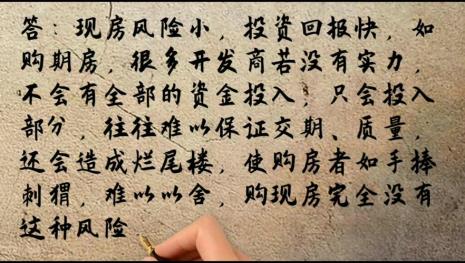 答：现房风险小，投资回报快，如
购期房，很多开发商若没有实力，
不会有全部的资金投入，只会投入
部分，往往难以保证交期、质量，
还会造成烂尾楼，使购房者如手捧
刺猬，难以以舍，购现房完全没有
这种风险